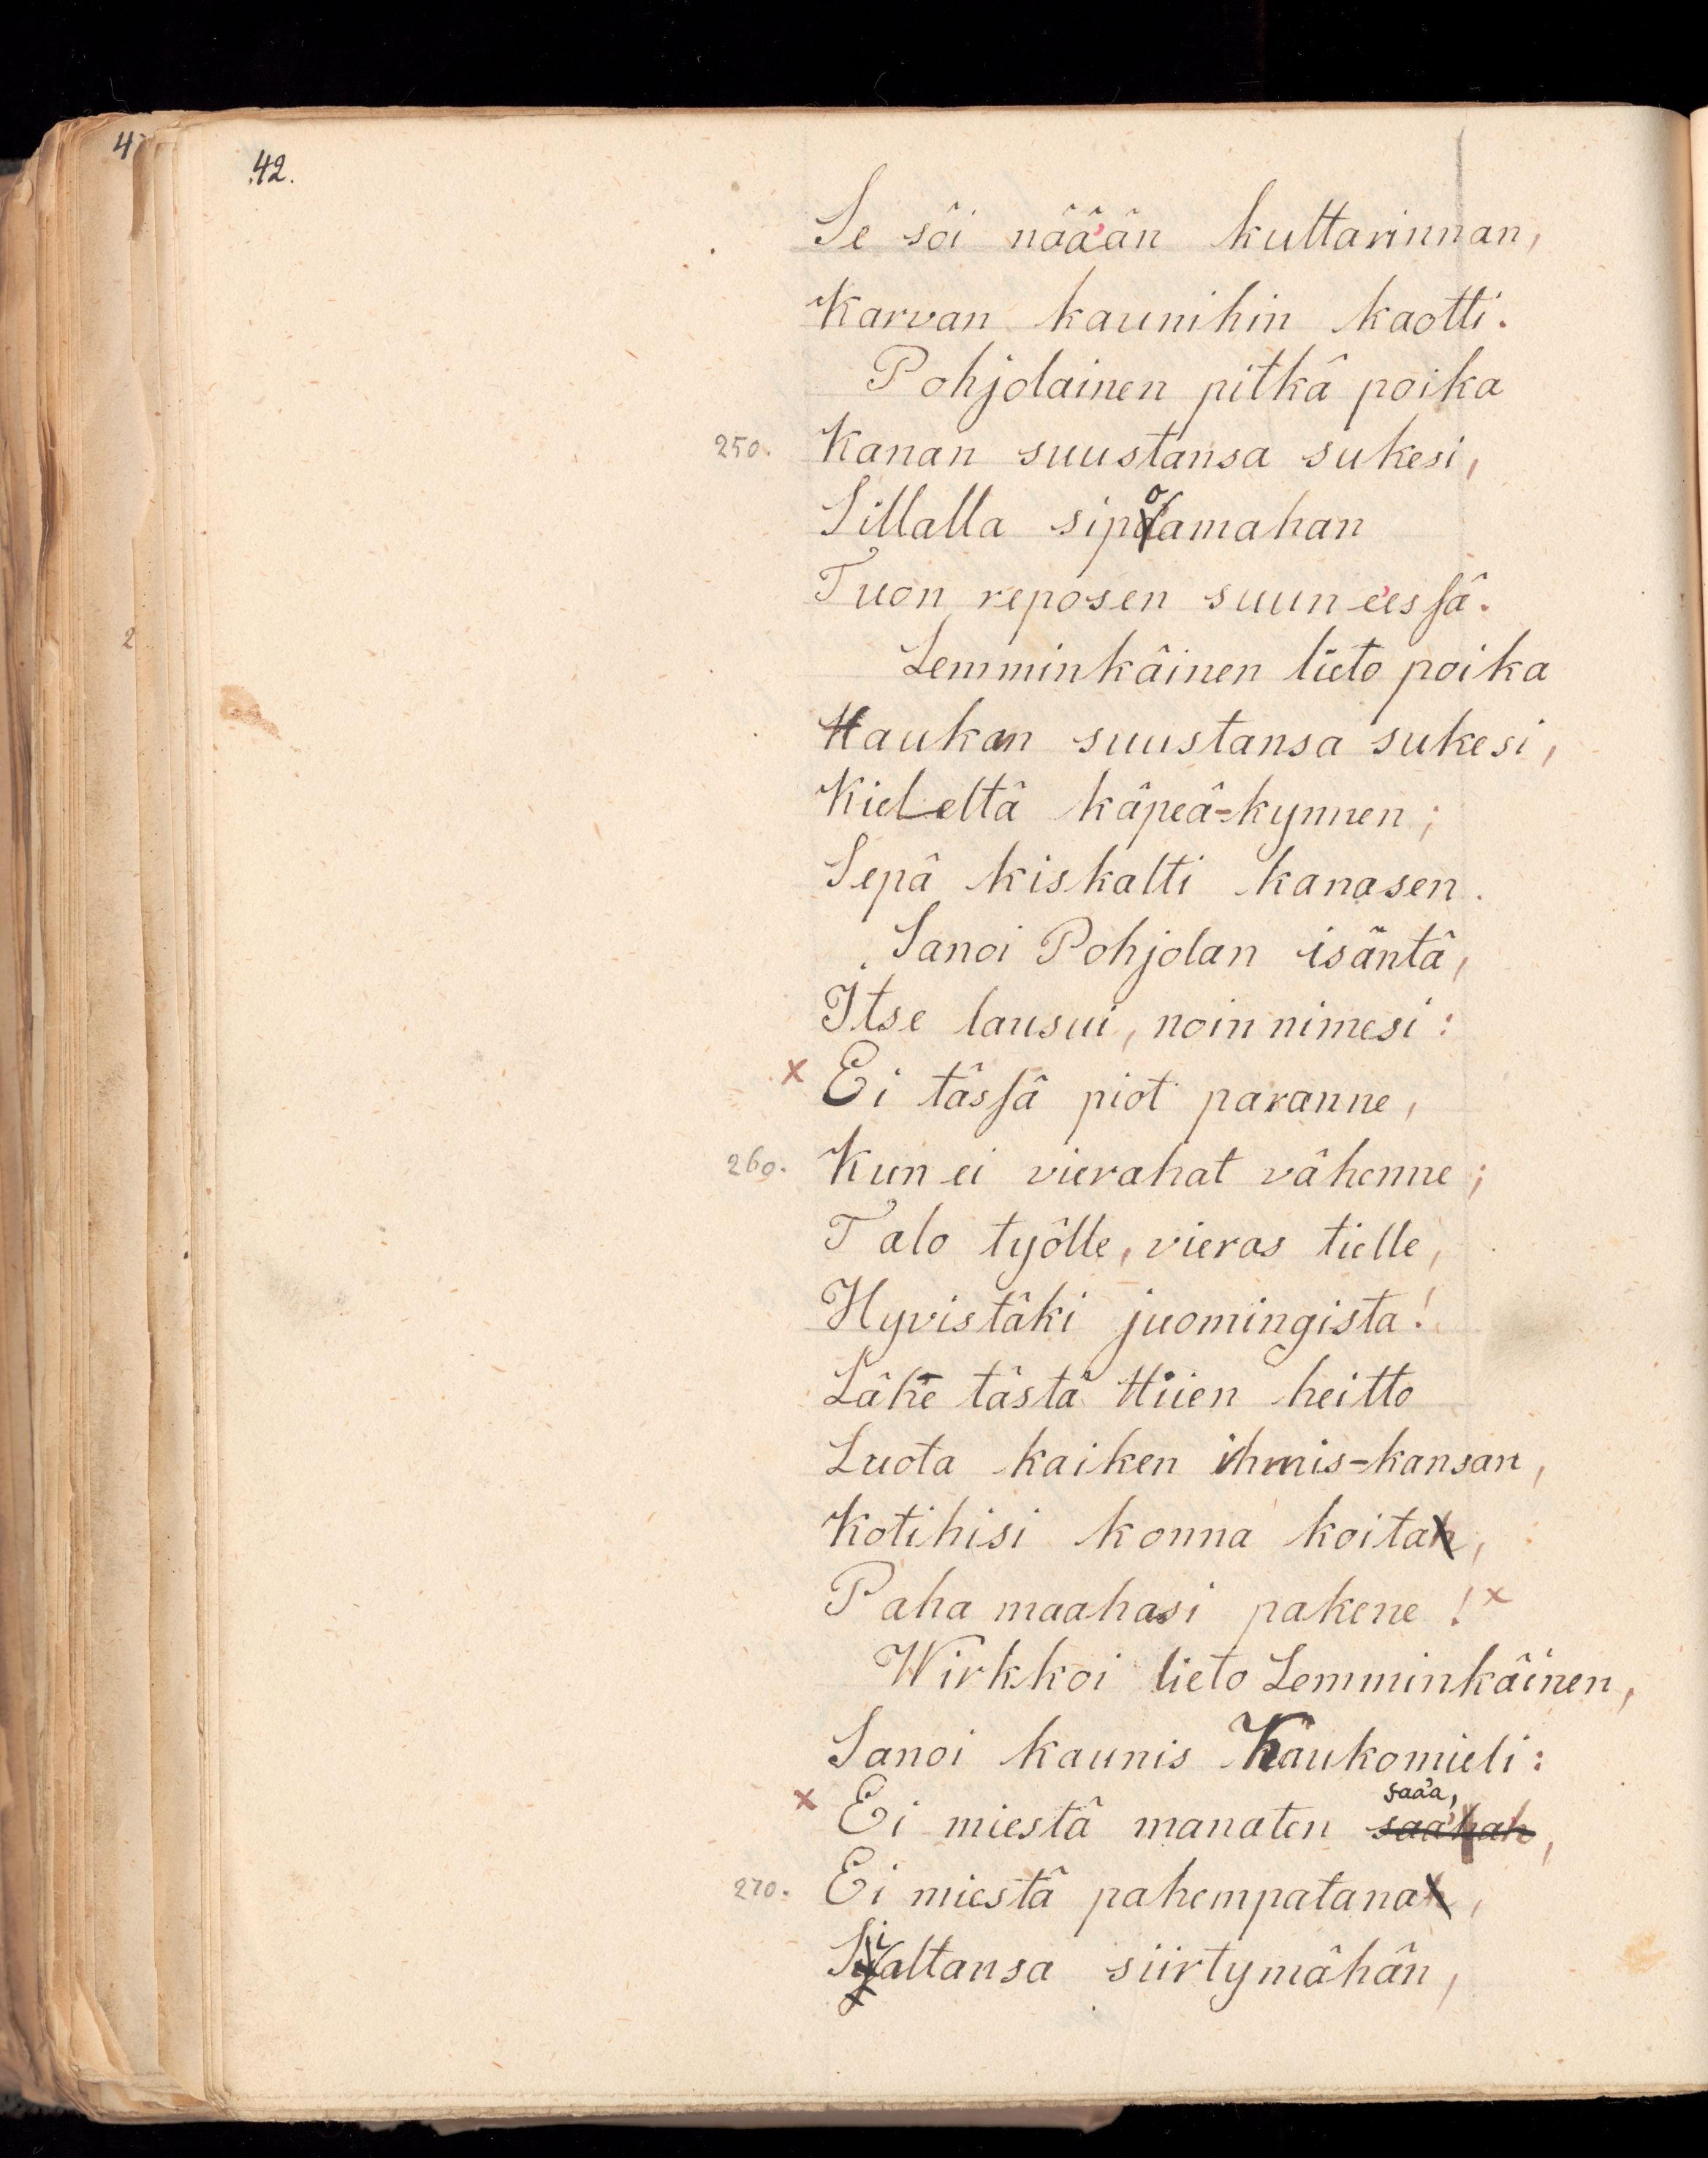 4
42.
2
Se söi nää'än kultarinnan,
Karvan kaunihin kaotti.
Pohjolainen pitkä poika
250. Kanan suustansa sukesi,
Sillalla sipoamahan
Tuon reposen suun e'essä.
Lemminkäinen lieto poika
Haukan suustansa sukesi,
Kieleltä käpeä-kynnen;
Sepä kiskalti kanasen.
Sanoi Pohjolan isäntä,
Itse lausui, noin nimesi:
x Ei tässä piot paranne,
260. Kun ei vierahat vähenne;
Talo työlle, vieras tielle,
Hyvistäki juomingista!
Lähe tästä Hiien heitto
Luota kaiken ihmis-kansan,
Kotihisi konna koitah,
Paha maahasi pakene! x
Wirkkoi lieto Lemminkäinen,
Sanoi kaunis Kaukomieli:
saa'a,
x Ei miestä manaten saa'hah,
270. Ei miestä pahempatanah,
Sialtansa siirtymähän,